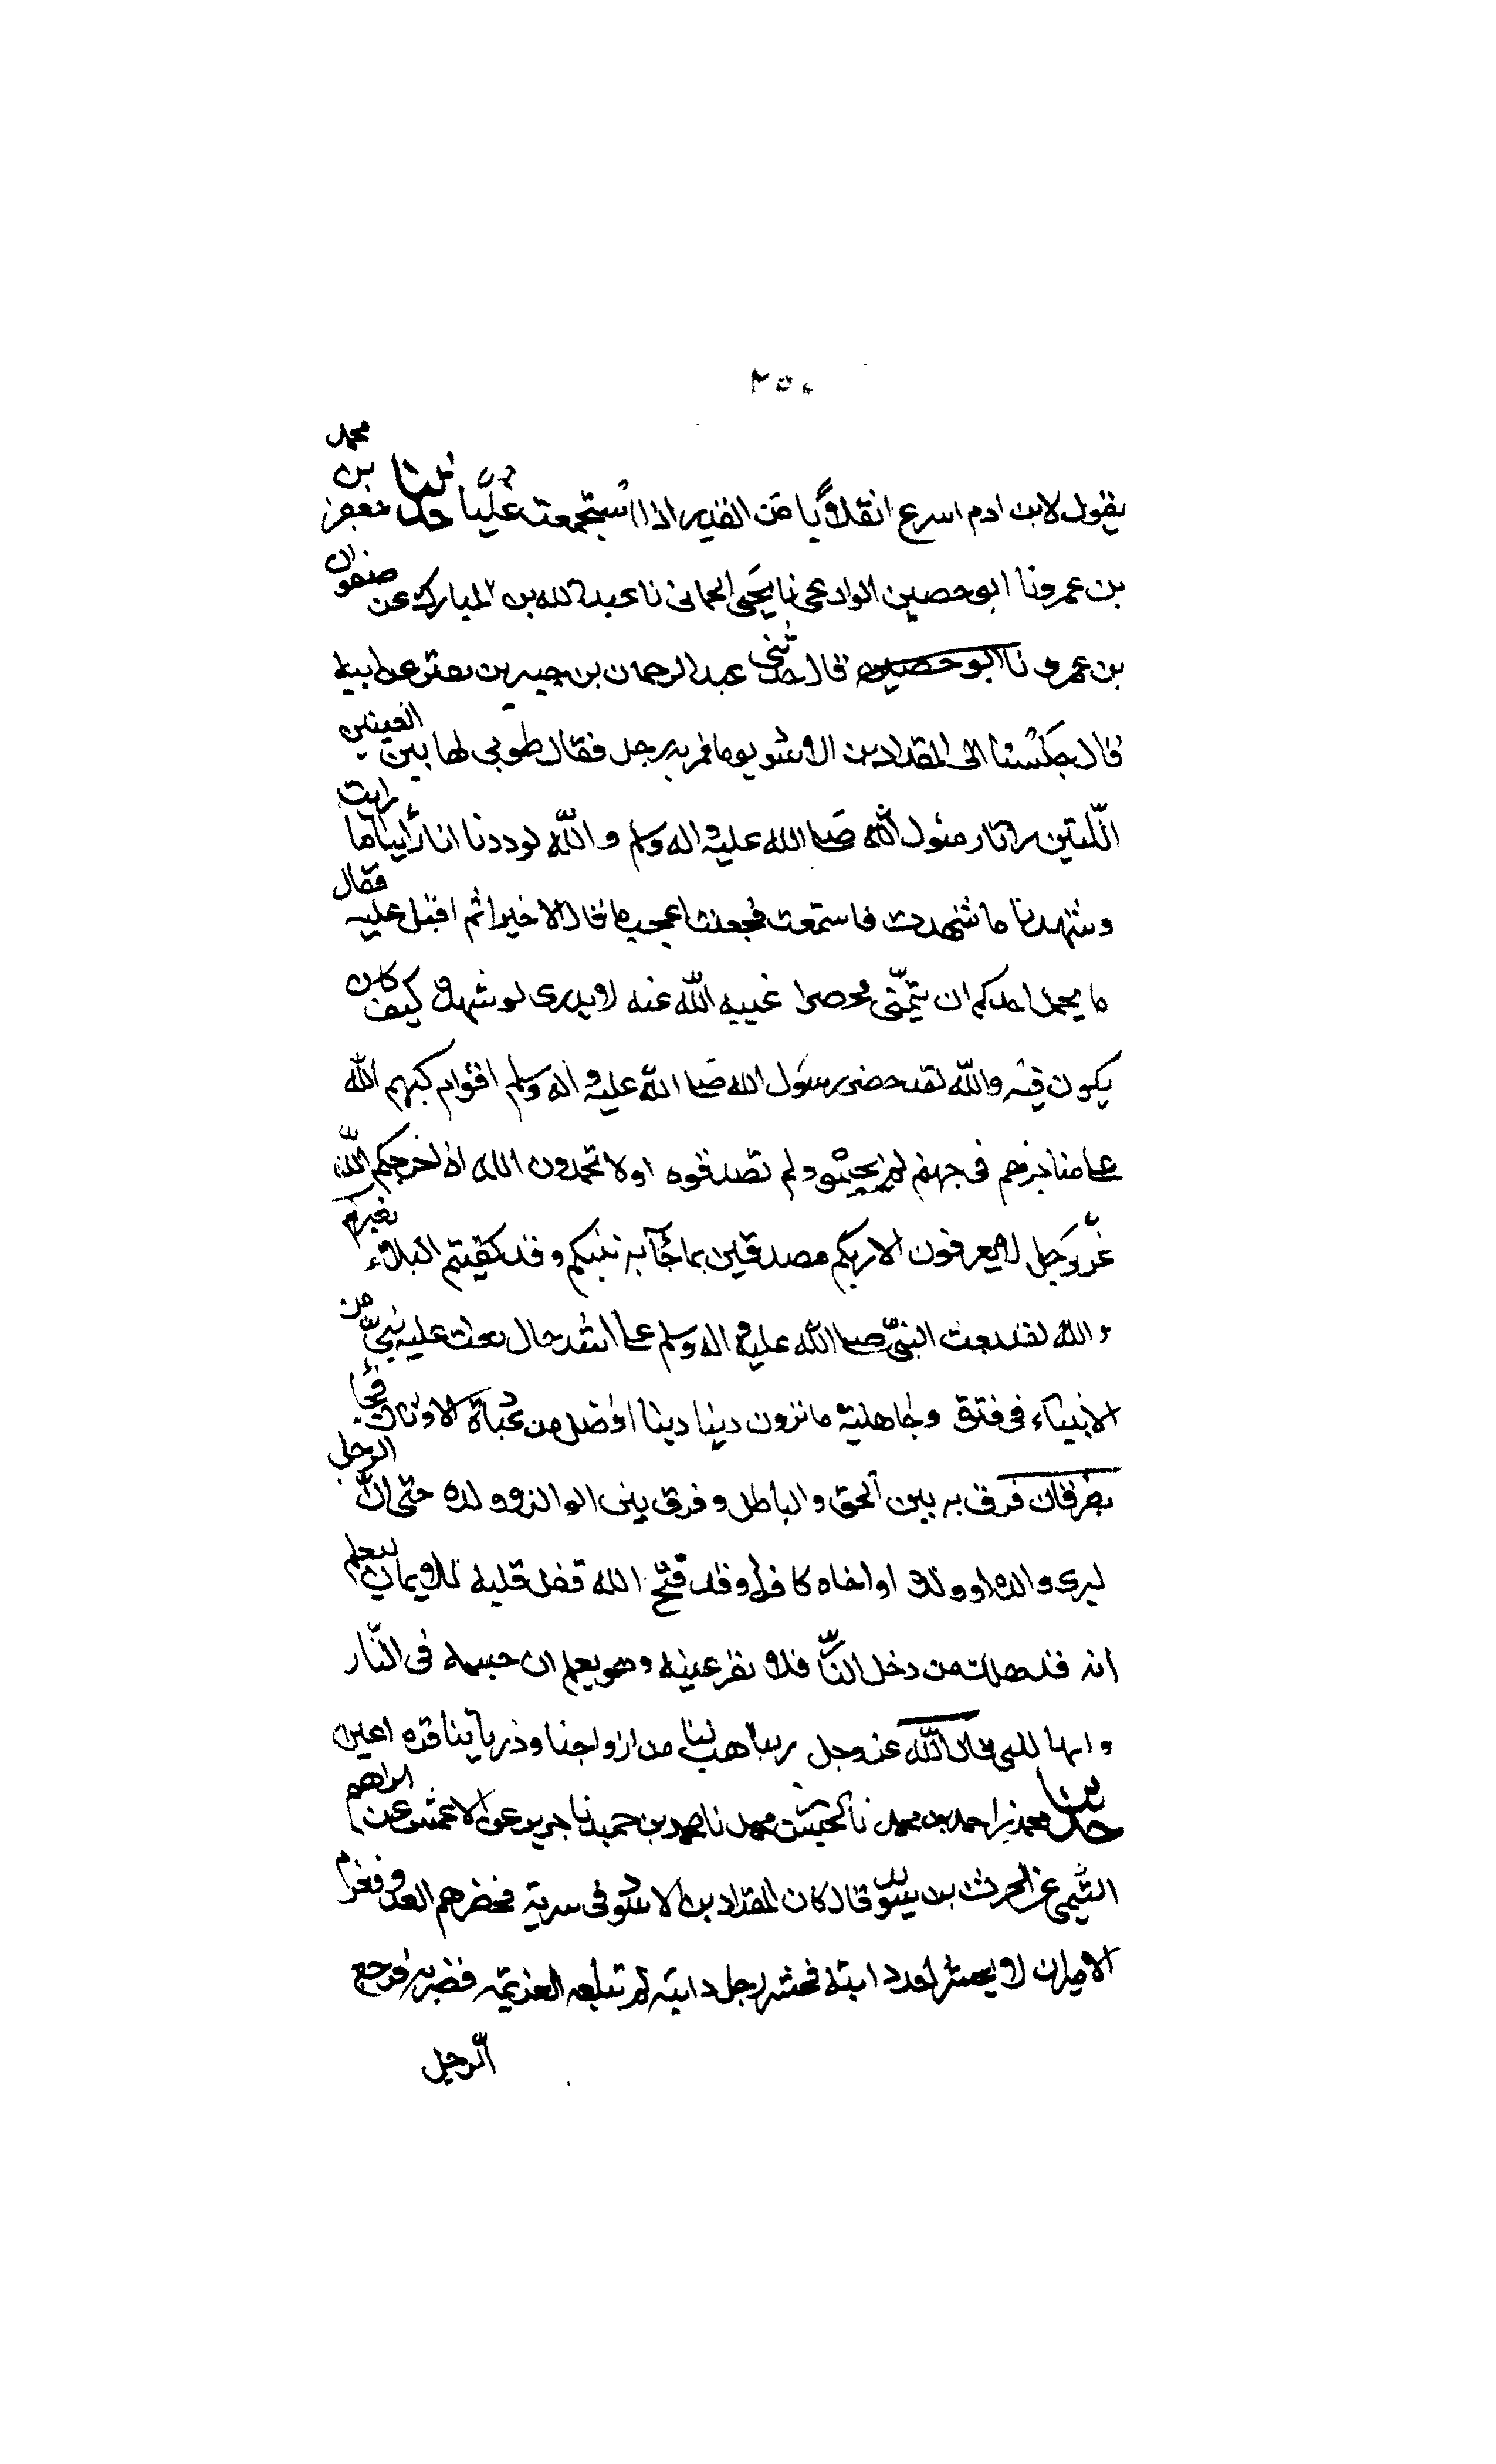 ٢٥٠
يقول لابن ادم اسرع انقلابا من القدر اذا استجمعت غليا حدثنا محمد بن جعفر
بن عمرو نا ابو حصين الوادعى نا يحيى الحمانى نا عبد الله بن المبارك عن صفوان
بن عمرو نا ابو حصين قال حدثنى عبد الرحمان بن جبير بن نفير عن ابيه
قال جلسنا الى المقداد بن الاسود يوما فمر به رجل فقال طوبى لها بين العينين
اللتين راتا رسول الله صلى الله عليه واله وسلم والله لوددنا انا راينا ما رايت
وشهدنا ما شهدت فاستمعت فجعلت اعجب ما قال الا خيرا ثم اقبل عليه فقال
ما يحمل احدكم ان يتمنى محضرا غيبه الله عنه لا يدرى لو شهده كيف كان
يكون فيه والله لقد حضر رسول الله صلى الله عليه واله وسلم اقوام كبهم الله
على مناخرهم فى جهنم لم يجيبوه ولم تصدقوه اولا تحمدون الله اذ اخرجكم الله
عز وجل لا تعرفون الا ربكم مصدقين بما جآ به نبيكم وقد كفيتم البلاء بغيركم
والله لقد بعث النبى صلى الله عليه واله وسلم على اشد حال بعث عليه نبى من
الانبياء فى فترة وجاهلية ما نرون دينا دينا افضل من عبادة الاوثان فجا
بفرقان فرق به بين الحق والباطل وفرق بين الوالد وولده حتى ان الرجل
ليرى والده او ولده او اخاه كافرا وقد فتح الله قفل قلبه للايمان ليعلم
انه قد هلك من دخل النار فلا تقر عينه وهو يعلم ان حبيبه فى النار
وانها للتى قال الله عز وجل ربنا هب لنا من ازواجنا وذرياتنا قرة اعين
حدثنا محمد بن احمد بن محمد نا الحسن بن محمد نا محمد بن حميد نا جرير عن الاعمش عن ابراهيم
التيمى عن الحرث بن سويد قال كان المقداد بن الاسود فى سرية فحضرهم العدو فعزم
الامير ان لا يحشر احد دابته فحشر رجل دابته لم تبلغه العزيمة فضربه فرجع
الرجل